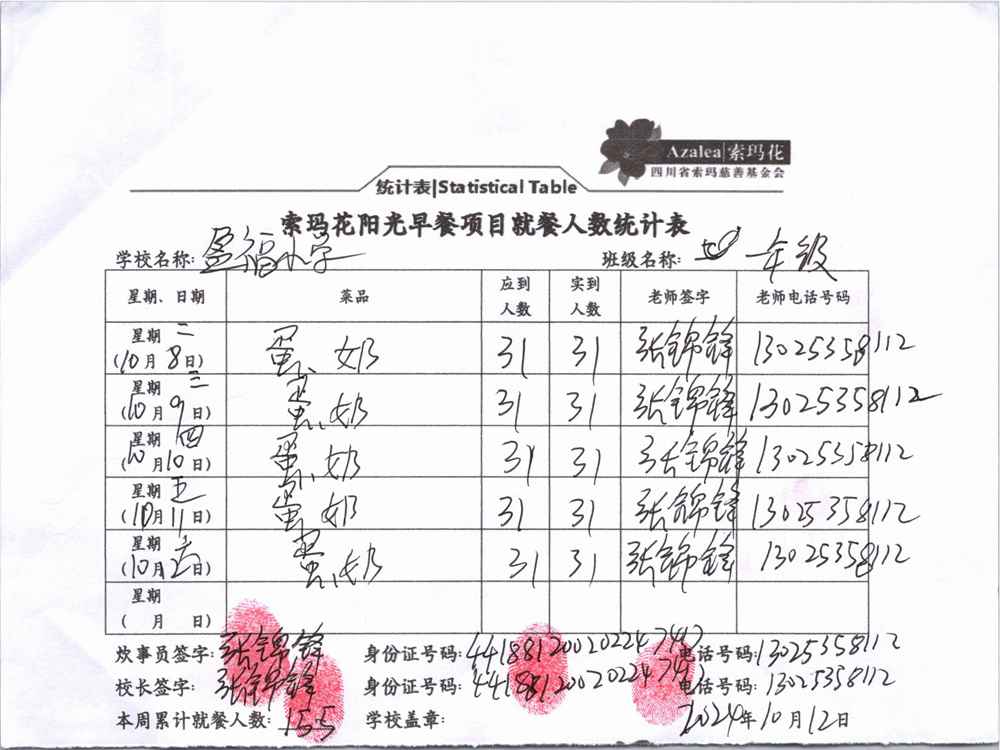 Azalea|索玛花
四川省索玛慈善基金会
统计表|Statistical Table
索玛花阳光早餐项目就餐人数统计表
学校名称: 盈福小学 班级名称: 一年级
星期、日期 菜品 应到人数 实到人数 老师签字 老师电话号码
星期二 (10月8日) 蛋、奶 31 31 张锦锋 13025358112
星期三 (10月9日) 蛋、奶 31 31 张锦锋 13025358112
星期四 (10月10日) 蛋、奶 31 31 张锦锋 13025358112
星期五 (10月11日) 蛋、奶 31 31 张锦锋 13025358112
星期六 (10月12日) 蛋、奶 31 31 张锦锋 13025358112
星期 ( 月 日)
炊事员签字: 张锦锋 身份证号码: 441881200202247412 电话号码: 13025358112
校长签字: 张锦锋 身份证号码: 441881200202247412 电话号码: 13025358112
本周累计就餐人数: 155 学校盖章: 2024年10月12日